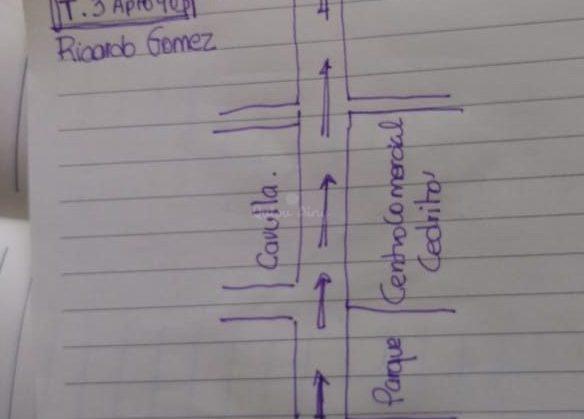 T. 3 Apto 401
Ricardo Gomez
Carulla.
Centro Comercial
Cedritos
Parque